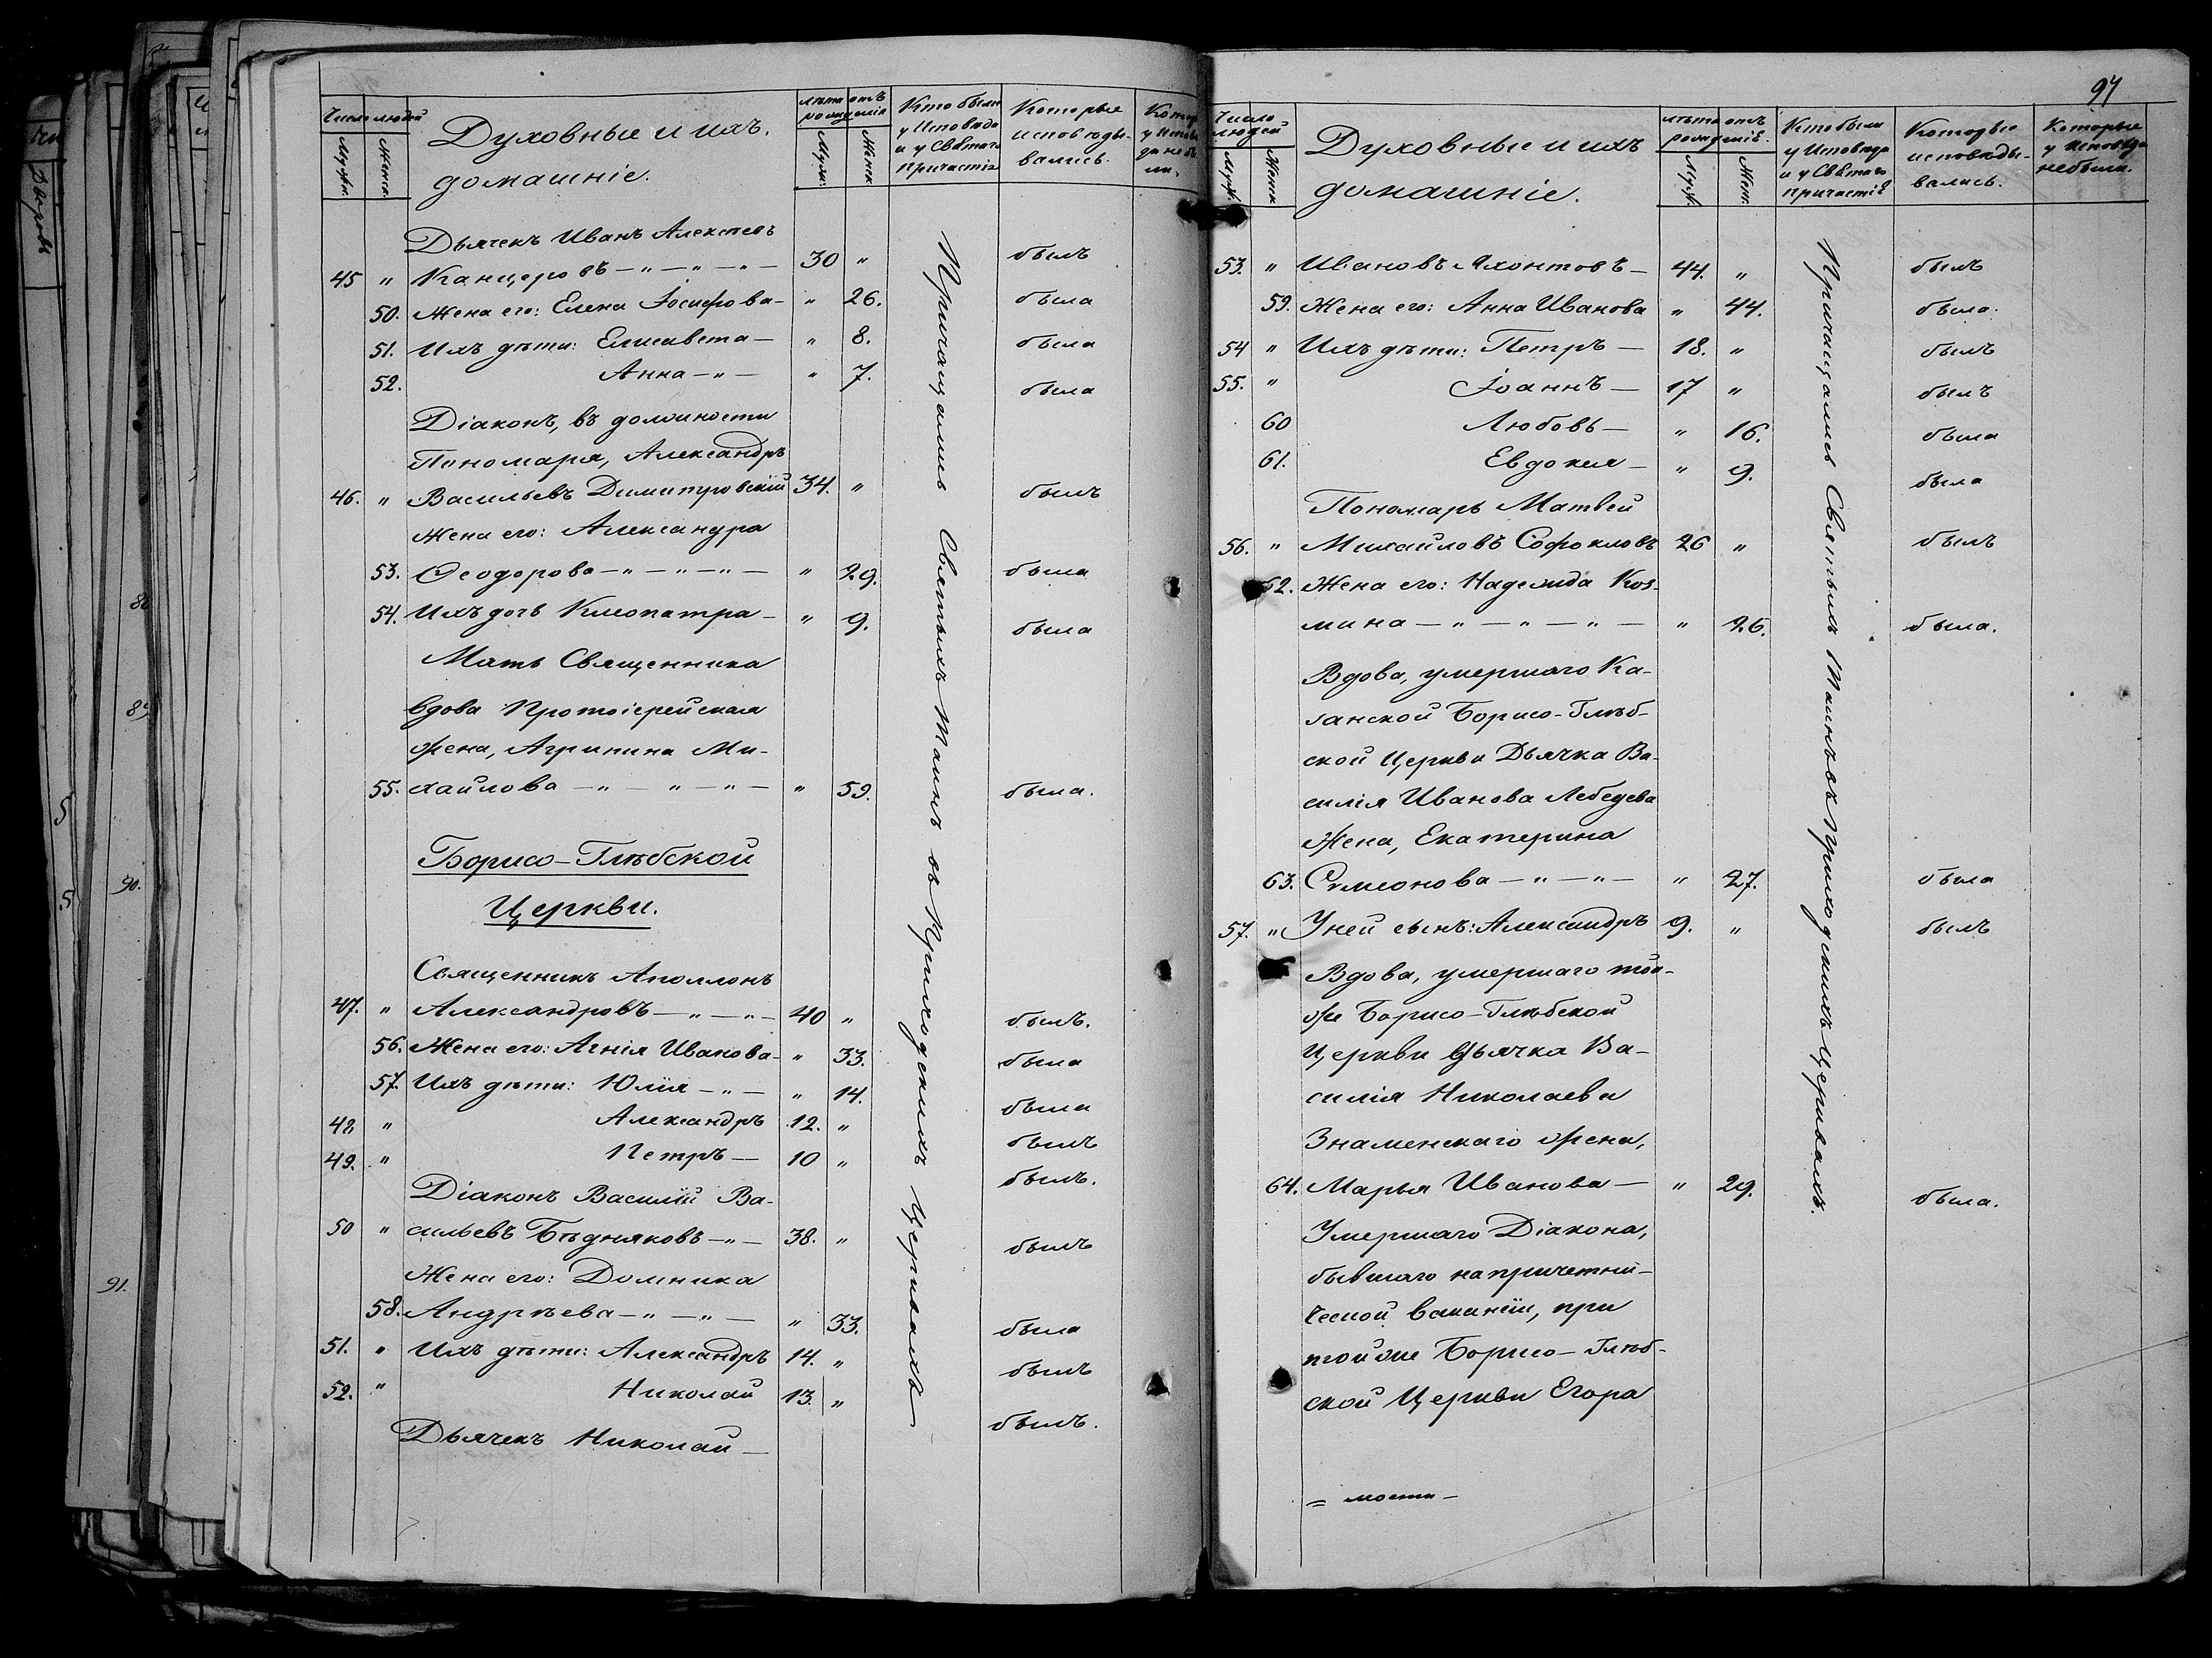 Число людей
Мужск.
Женск.
Духовные и ихъ
домашніе.
лѣта отъ
рожденія
Муж.
Женск.
Кто были
у Исповѣди
и у Святаго
Причастія
Которые
исповѣды-
вались.
Дьячекъ Иванъ Алексѣевъ
45 " Канцеровъ - " - " - " - 30 " былъ
50. Жена его: Елена Іосифова - " 26. была
51. Ихъ дѣти: Елисавета - " 8. была
52. Анна - " - " 7. была
Діаконъ, въ должности
Пономаря, Александръ
46. " Васильевъ Димитровскій 34. " былъ
Жена его: Александра
53. Ѳеодорова - " - " - " - " 29. была
54. Ихъ дочь Клеопатра - " 9. была
Мать Священника
вдова Протоіерейская
жена, Агрипина Ми-
55. хайлова - " - " - " - " 59. была.
Борисо-Глѣбской
Церкви.
Священникъ Аполлонъ
47. " Александровъ - " - " - 40 " былъ.
56. Жена его: Агнія Иванова - " 33. была
57. Ихъ дѣти: Юлія - " - " 14. была
48. " Александръ 12. " былъ
49. " Петръ - 10 " былъ.
Діаконъ Василій Ва-
50 " сильевъ Бѣдняковъ - " - 38. " былъ
Жена его: Домника
58. Андрѣева - " - " - " 33. была
51. " Ихъ дѣти: Александръ 14. " былъ
52. " Николай 13. " былъ.
Дьячекъ Николай -
Причащались Святыхъ Таинъ въ Приходскихъ Церквахъ
94
Число
людей
Муж.
Женск.
Духовные и ихъ
домашніе.
лѣта отъ
рожденія.
Муж.
Женс.
Кто были
у Исповѣди
и у Святаго
Причастія
Которые
исповѣды-
вались.
Которые
у Исповѣди
не были.
53. " Ивановъ Яхонтовъ - 44. " былъ
59. Жена его: Анна Иванова " 44. была.
54 " Ихъ дѣти: Петръ - 18. " былъ
55. " Іоаннъ - 17 " былъ
60 Любовь - " 16. была
61. Евдокія - " 9. была
Пономарь Матвей
56. " Михайловъ Софокловъ 26 " былъ
62. Жена его: Надежда Коз-
мина - " - " - " - " 26. была.
Вдова, умершаго Ка-
занской Борисо-Глѣб-
ской Церкви Дьячка Ва-
силія Иванова Лебедева
жена, Екатерина
63. Симеонова - " - " - " 27. была
57. " У ней сынъ: Александръ 9. " былъ
Вдова, умершаго той-
же Борисо-Глѣбской
Церкви Дьячка Ва-
силія Николаева
Знаменскаго жена,
64. Марья Иванова - " 29. была.
Умершаго Діакона,
бывшаго на причетни-
ческой вакансіи, при
той же Борисо-Глѣб-
ской Церкви Егора
Причащались Святыхъ Таинъ въ Приходскихъ Церквахъ.